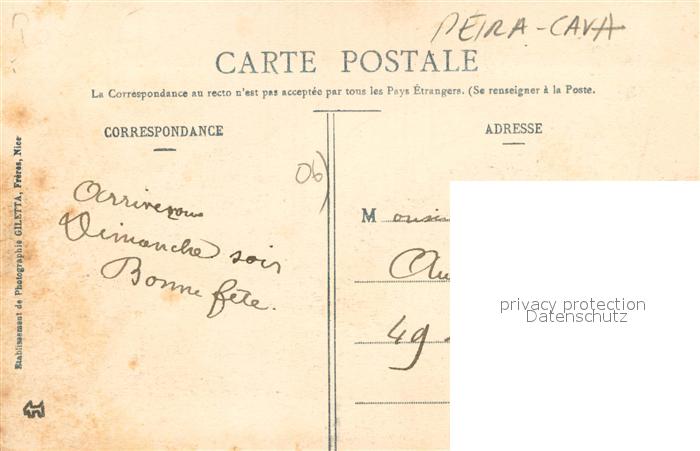 PEÏRA-CAVA
CARTE POSTALE
La Correspondance au recto n'est pas acceptée par tous les Pays Étrangers. (Se renseigner à la Poste.
CORRESPONDANCE
ADRESSE
06)
Arriverons
Dimanche soir
Bonne fête.
M onsi
Au
49
privacy protection
Datenschutz
Etablissement de Photographie GILETTA, Frères, Nice